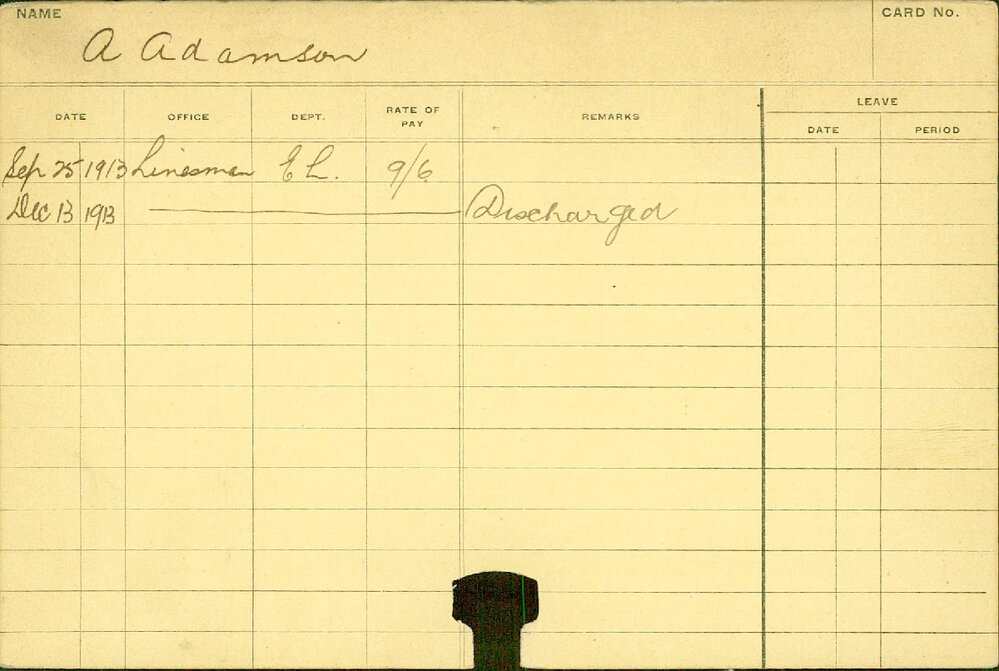 NAME CARD No.
A Adamson
LEAVE
DATE OFFICE DEPT. RATE OF PAY REMARKS DATE PERIOD
Sep 25 1913 Linesman E L. 9/6
Dec 13 1913 Discharged